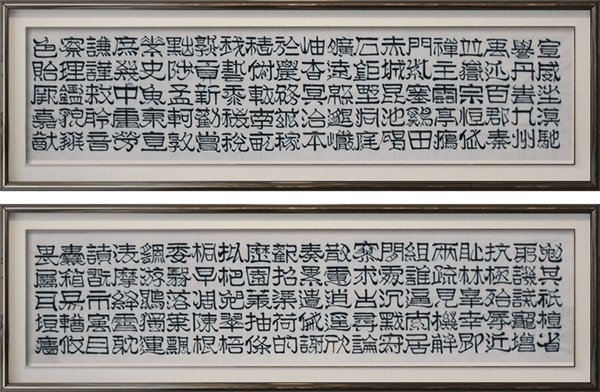 宣威沙漠馳
譽丹青九州
禹迹百郡秦
并嶽宗恒岱
禪主雲亭雁
門紫塞雞田
赤城昆池碣
石鉅野洞庭
曠遠綿邈巖
岫杳冥治本
於農務茲稼
穡俶載南畝
我藝黍稷稅
熟貢新勸賞
黜陟孟軻敦
素史魚秉直
庶幾中庸勞
謙謹敕聆音
察理鑑貌辨
色貽厥嘉猷
勉其祗植省
躬譏誡寵增
抗極殆辱近
恥林皋幸即
兩疏見機解
組誰逼索居
閑處沉默寂
寥求古尋論
散慮逍遙欣
奏累遣慼謝
歡招渠荷的
歷園莽抽條
枇杷晚翠梧
桐早凋陳根
委翳落葉飄
颻游鵾獨運
凌摩絳霄耽
讀翫市寓目
囊箱易輶攸
畏屬耳垣牆